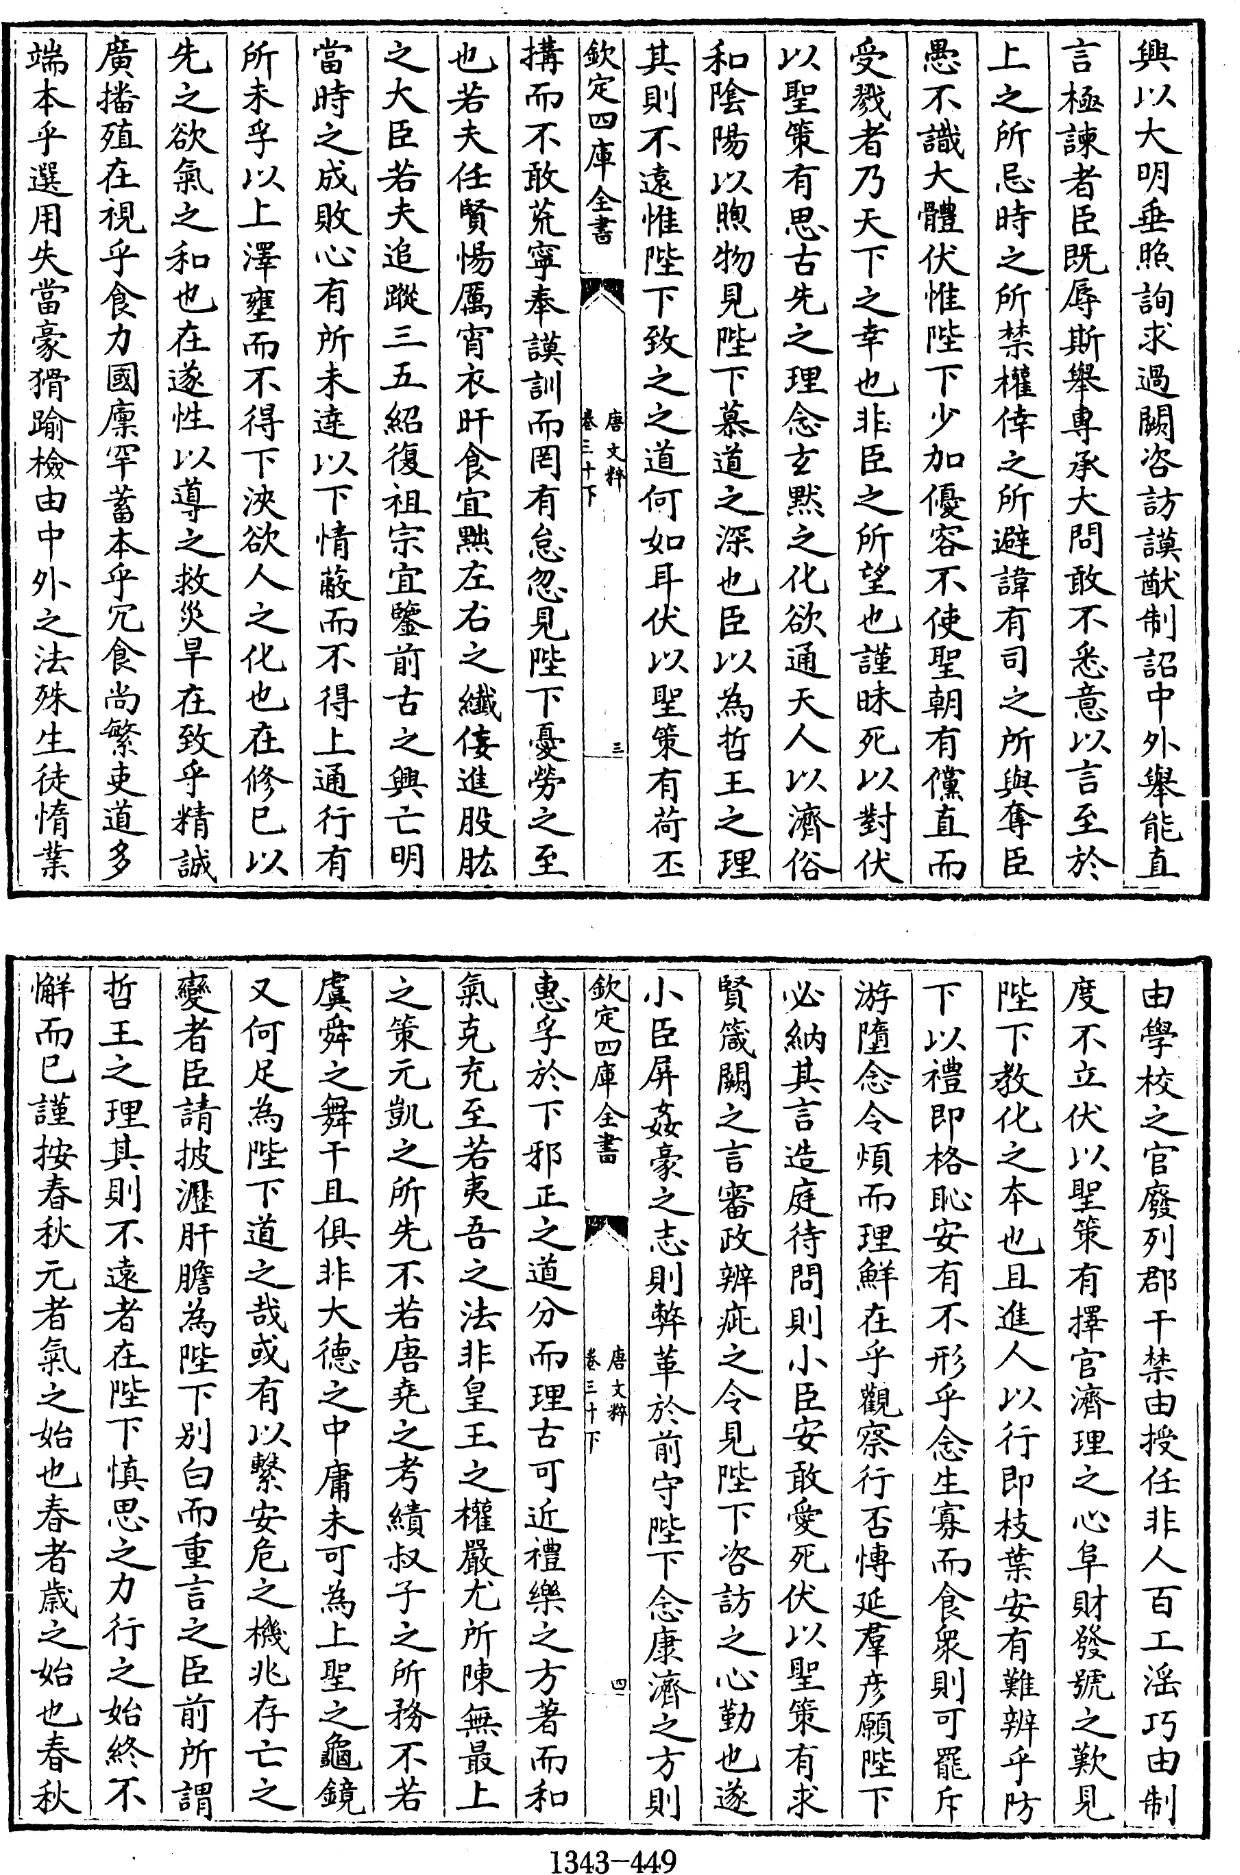 興以大明垂照詢求過闕咨訪謨猷制詔中外舉能直
言極諫者臣既辱斯舉專承大問敢不悉意以言至於
上之所忌時之所禁權倖之所避諱有司之所與奪臣
愚不識大體伏惟陛下少加優容不使聖朝有讜直而
受戮者乃天下之幸也非臣之所望也謹昧死以對伏
以聖策有思古先之理念玄默之化欲通天人以濟俗
和陰陽以煦物見陛下慕道之深也臣以為哲王之理
其則不遠惟陛下致之之道何如耳伏以聖策有荷丕
欽定四庫全書
唐文粹
卷三十下
三
搆而不敢荒寧奉謨訓而罔有怠忽見陛下憂勞之至
也若夫任賢惕厲宵衣旰食宜黜左右之纖佞進股肱
之大臣若夫追蹤三五紹復祖宗宜鑒前古之興亡明
當時之成敗心有所未達以下情蔽而不得上通行有
所未孚以上澤壅而不得下浹欲人之化也在修已以
先之欲氣之和也在遂性以導之救災旱在致乎精誠
廣播殖在視乎食力國廩罕蓄本乎冗食尚繁吏道多
端本乎選用失當豪猾踰檢由中外之法殊生徒惰業
由學校之官廢列郡干禁由授任非人百工淫巧由制
度不立伏以聖策有擇官濟理之心阜財發號之歎見
陛下教化之本也且進人以行即枝葉安有難辨乎防
下以禮即格恥安有不形乎念生寡而食衆則可罷斥
游墮念令煩而理鮮在乎觀察行否慱延羣彦願陛下
必納其言造庭待問則小臣安敢愛死伏以聖策有求
賢箴闕之言審政辨疵之令見陛下咨訪之心勤也遂
小臣屏姦豪之志則弊革於前守陛下念康濟之方則
欽定四庫全書
唐文粹
卷三十下
四
惠孚於下邪正之道分而理古可近禮樂之方著而和
氣克充至若夷吾之法非皇王之權嚴尤所陳無最上
之策元凱之所先不若唐堯之考績叔子之所務不若
虞舜之舞干且俱非大德之中庸未可為上聖之龜鏡
又何足為陛下道之哉或有以繫安危之機兆存亡之
變者臣請披瀝肝膽為陛下别白而重言之臣前所謂
哲王之理其則不遠者在陛下慎思之力行之始終不
懈而已謹按春秋元者氣之始也春者歲之始也春秋
1343-449